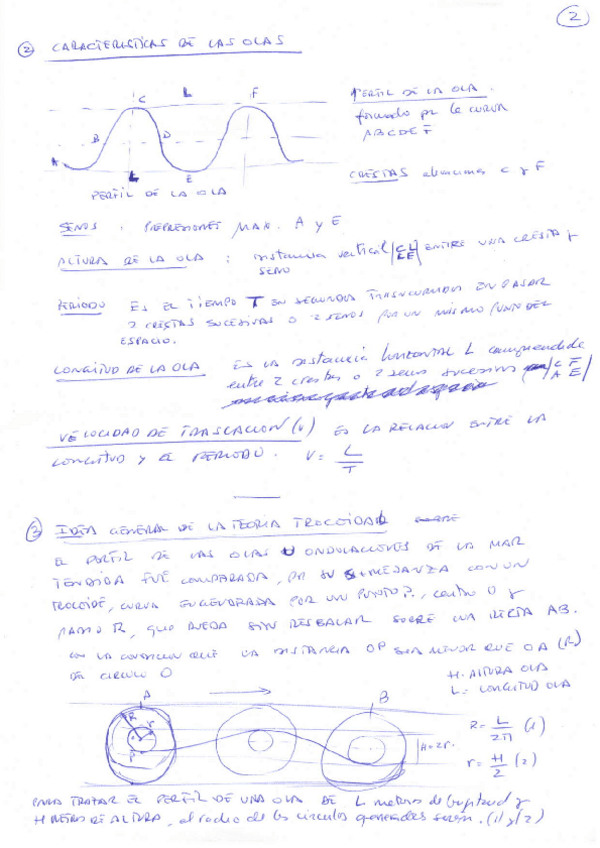 2
2 CARACTERISTICAS DE LAS OLAS
C L F
B D
A L E
PERFIL DE LA OLA
PERFIL DE LA OLA.
formado por la curva
ABCDEF
CRESTAS C y F
SENOS: DEPRESIONES MAX. A y E
ALTURA DE LA OLA: distancia vertical ENTRE UNA CRESTA Y
SENO
PERIODO ES EL TIEMPO T EN SEGUNDOS TRANSCURRIDO EN PASAR
2 CRESTAS SUCESIVAS O 2 SENOS POR UN MISMO PUNTO DEL
ESPACIO.
LONGITUD DE LA OLA ES LA distancia horizontal L comprendida
entre 2 crestas o 2 senos sucesivos C F
A E
VELOCIDAD DE TRASLACION (V) ES LA RELACION ENTRE LA
LONGITUD Y EL PERIODO. V = L
T
3 IDEA GENERAL DE LA TEORIA TROCOIDAL
EL PERFIL DE LAS OLAS U ONDULACIONES DE LA MAR
TENDIDA FUE COMPARADA, POR SU SEMEJANZA CON UN
TROCOIDE, CURVA ENGENDRADA POR UN PUNTO P, centro O y
RADIO R, QUE RUEDA SIN RESBALAR SOBRE UNA RECTA AB.
CON LA CONDICION QUE LA DISTANCIA OP SEA MENOR QUE OA (R)
DE CIRCULO O
H = ALTURA OLA
L = LONGITUD OLA
A B
R r
P
H=2r.
R = L (1)
2Π
r = H (2)
2
PARA TRAZAR EL PERFIL DE UNA OLA DE L metros de longitud y
H METROS DE ALTURA, el radio de los circulos generales serán. (1) y (2)